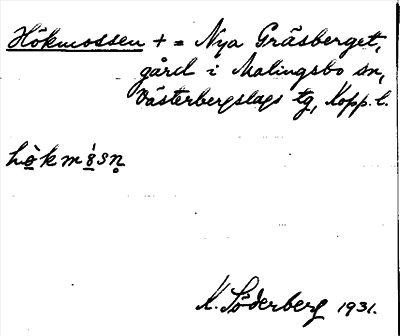 Hökmossen + = Nya Gräsberget,
gård i Malingsbo sn,
Västerbergslags tg, Kopp. l.
hö̀kmósn̥
K. Söderberg 1931.